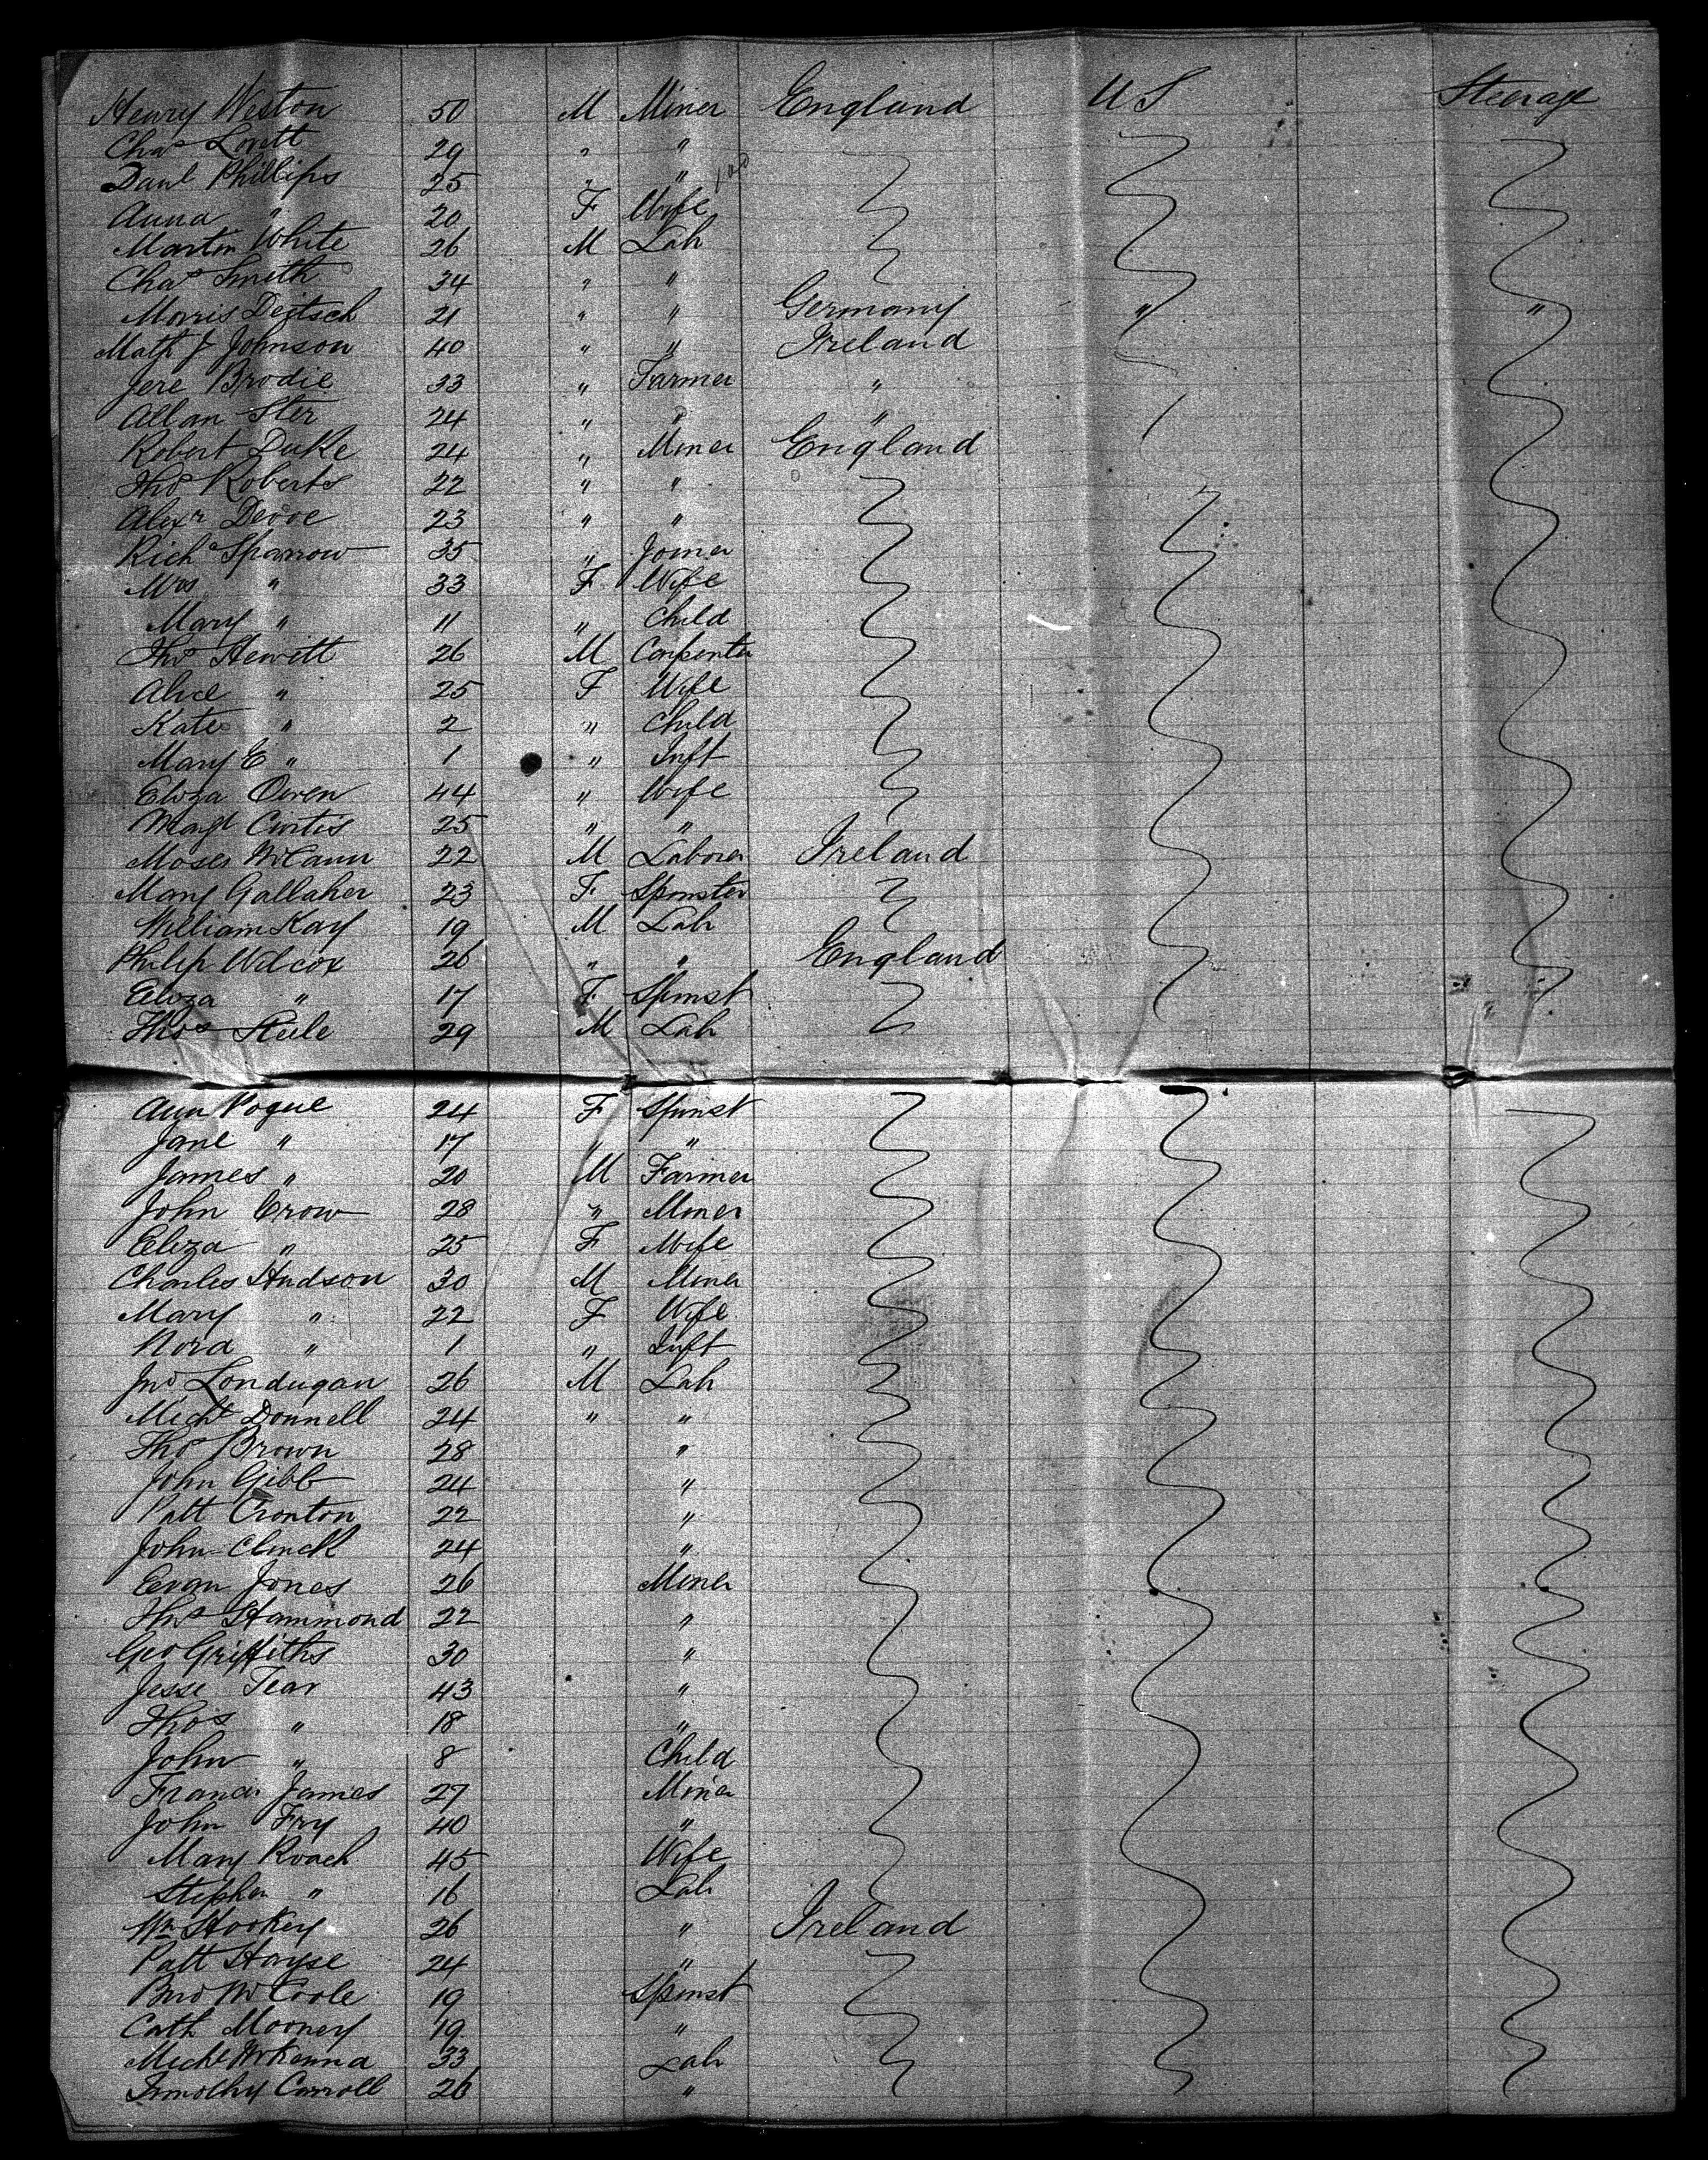 Henry Weston 50 M Miner England U S Steerage
Chas Lovett 29 " "
Danl Phillips 25 " "
Anna " 20 F Wife
Martin White 26 M Lab
Chas Smith 34 " "
Morris Deitsch 21 " " Germany " "
Math J Johnson 40 " " Ireland
Jere Brodie 33 " Farmer "
Allan Ster 24 " " "
Robert Duke 24 " Miner England
Thos Roberts 22 " "
Alexr Devoe 23 " "
Rich Sparrow 35 " Joiner
Mrs " 33 F Wife
Mary " 11 " Child
Thos Hewitt 26 M Carpenter
Alice " 25 F Wife
Kate " 2 " Child
Mary E " 1 " Inft
Eliza Owen 44 " Wife
Magt Curtis 25 " "
Moses McCann 22 M Laborer Ireland
Mary Gallaher 23 F Spinster
William Kay 19 M Lab
Philip Wilcox 26 " " England
Eliza " 17 F Spinst
Thos Steele 29 M Lab
Ann Pogue 24 F Spinst
Jane " 17 " "
James " 20 M Farmer
John Crow 28 " Miner
Eliza " 25 F Wife
Charles Hudson 30 M Miner
Mary " 22 F Wife
Nora " 1 " Inft
Jno Londugan 26 M Lab
Michl Donnell 24 " "
Thos Brown 28 "
John Gibb 24 "
Patt Cronton 22 "
John Clinch 24 "
Evan Jones 26 Miner
Thos Hammond 22 "
Geo Griffiths 30 "
Jesse Tear 43 "
Thos " 18 "
John " 8 Child
Francis James 27 Miner
John Fry 40 "
Mary Roach 45 Wife
Stephen " 16 Lab
Wm Hookey 26 " Ireland
Patt Hayse 24 "
Brid McCoole 19 Spinst
Cath Mooney 19 "
Michl McKenna 33 Lab
Timothy Carroll 26 "